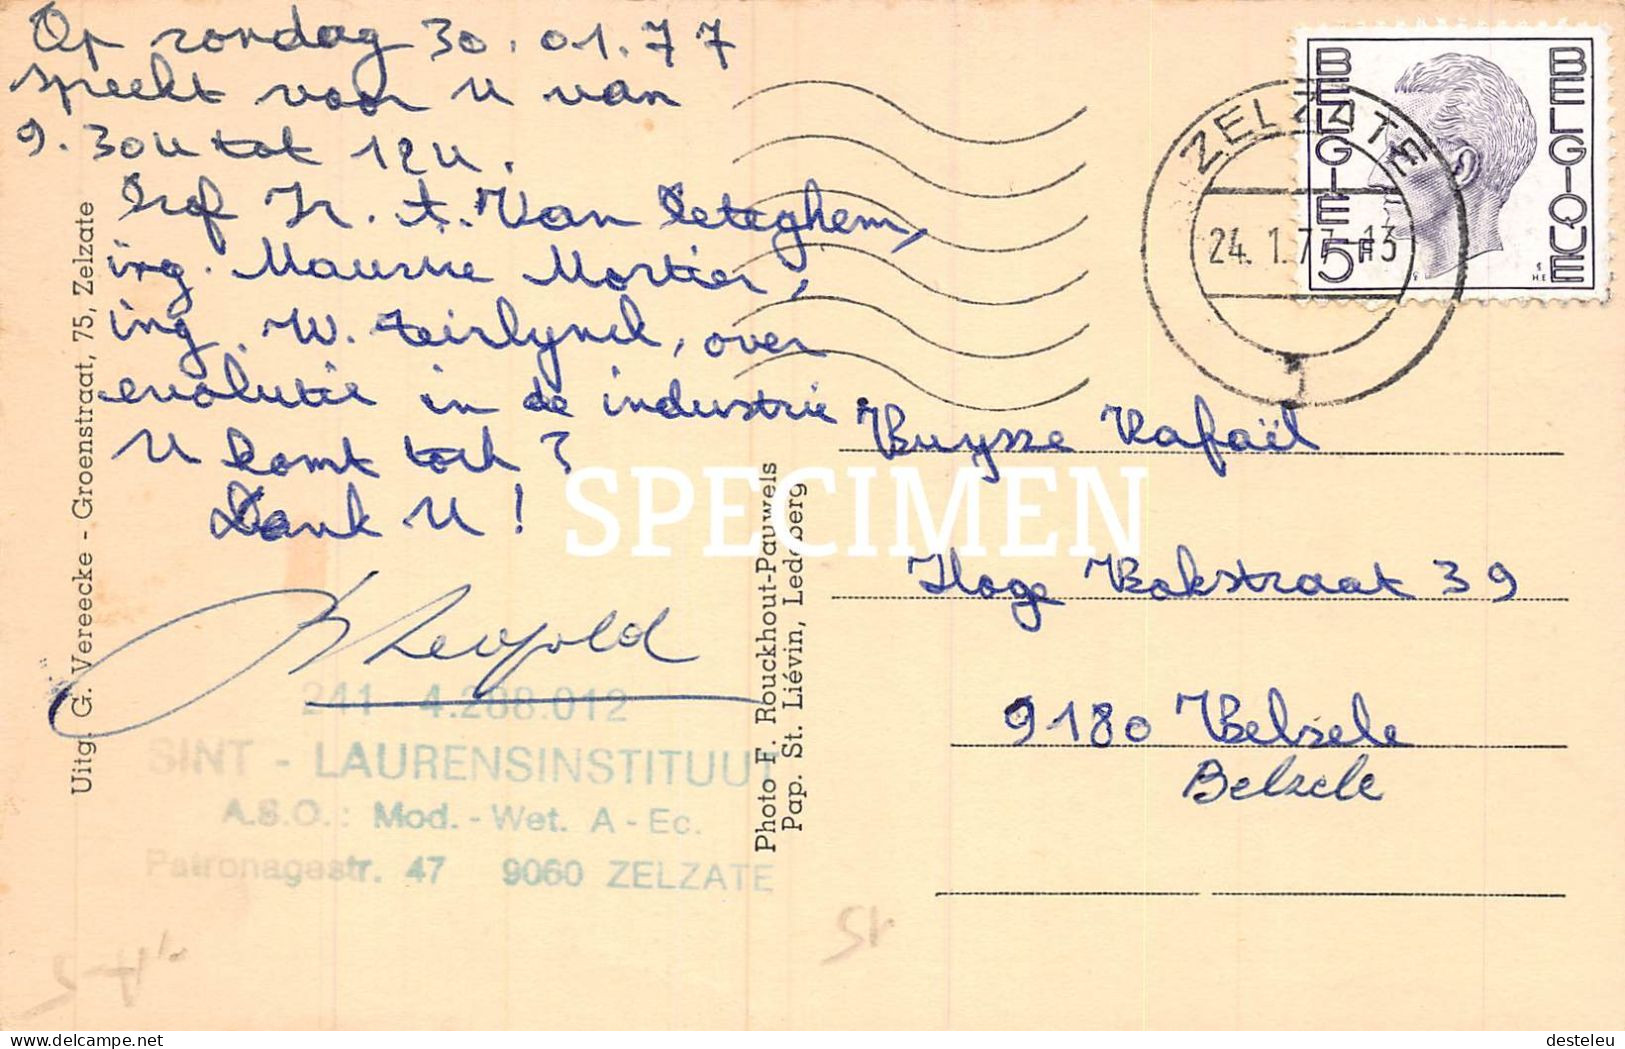 Op zondag 30.01.77
spreekt voor u van
9.30u tot 12u.
Prof Ir. A. Van Peteghem,
ing. Maurice Mortier,
ing. W. Teirlynck, over
evolutie in de industrie
U komt toch?
Dank U!
Leopold
241 - 4.208.012
SINT - LAURENSINSTITUUT
A.S.O.: Mod. - Wet. A - Ec.
Patronagestr. 47 9060 ZELZATE
Uitg. G. Vereecke - Groenstraat, 75, Zelzate
Photo F. Rouckhout-Pauwels
Pap. St. Liévin, Ledeberg
SPECIMEN
BELGIE
BELGIQUE
5F
ZELZATE
24. 1. 77. 13
1
Buysse Rafaël
Hoge Bokstraat 39
9180 Belsele
Belsele
15
desteleu